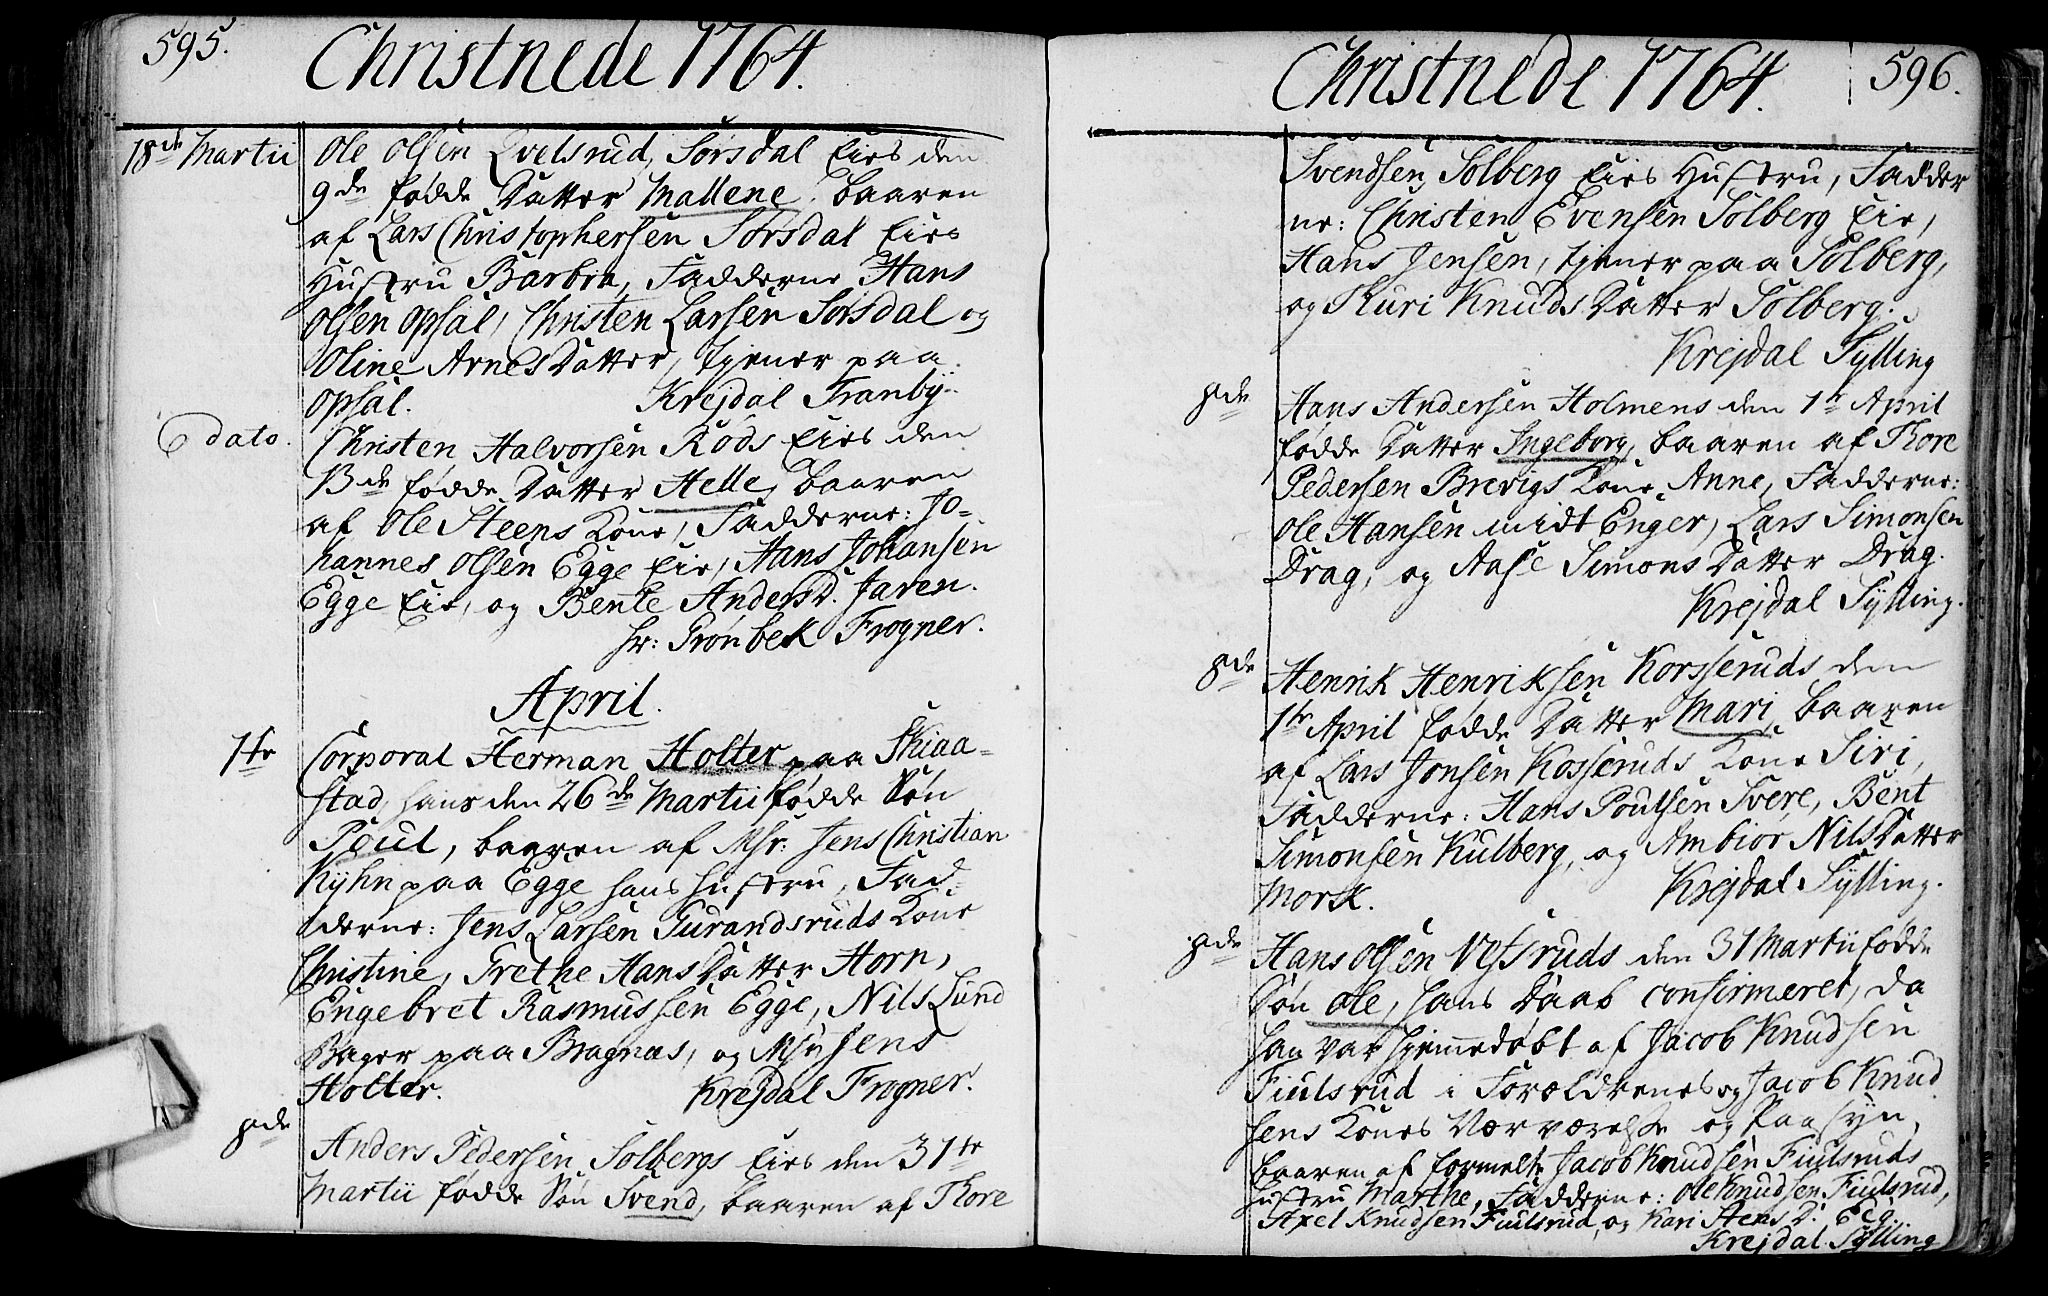 595.
Christnede 1764.
18de Martii Ole Olsen Qvelsrud, Sørsdal Eies den
9de fødde Datter Mallene, baaren
af Lars Christophersen Sørsdal Eies
Hustru Barbra, Fadderne Hans
Olsen Opsal, Christen Larsen Sørsdal og
Oline Arnes Datter, tjener paa
Opsal. Krejdal Tranbÿ.
E dato. Christen Halvorsen Røds Eies den
13de fødde Datter Helle, baaren
af Ole Steens Kone, Fadderne: Jo-
hannes Olsen Egge Eie, Hans Johansen
Egge Eie, og Bente Anders D. Jaren.
Hr: Grønbek Frogner.
April.
1te Corporal Herman Holter paa Skiaa-
stad, hans den 26de Martii fødde Søn
Poul, baaren af Msr: Jens Christian
Kÿhn paa Egge hans Hustru, Fad-
derne: Jens Larsen Gurandsruds Kone
Christine, Grethe Hans Datter Horn,
Engebret Rasmussen Egge, Nils Lund
Bager paa Bragnæs, og Msr Jens
Holter. Krejdal Frogner.
8de Anders Pedersen Solbergs Eies den 31te
Martii fødde Søn Svend, baaren af Thore
596.
Christnede 1764.
Svendsen Solberg Eies Hustru, Fadder
ne: Christen Evensen Solberg Eie,
Hans Jensen, tjener paa Solberg,
og Thuri Knuds Datter Solberg.
Krejdal Sylling
8de Hans Andersen Holmens den 1te April
fødde Datter Ingeborg, baaren af Thore
Pedersen Brevigs Kone Anne, Fadderne:
Ole Hansen midt Enger, Lars Simonsen
Drag, og Aase Simons Datter Drag.
Krejdal Sÿlling.
8de Henrik Henriksen Korsseruds den
1te April fødde Datter Mari, baaren
af Lars Jonsen Kosseruds Kone Siri,
Fadderne: Hans Poulsen Svere, Bent
Simonsen Kulberg, og Ambior Nils Datter
Morsk. Krejdal Sÿlling.
8de Hans Olsen Vesruds den 31 Martii fødde
Søn Ole, hans Daab confirmeret, da
han var hjemmedøbt af Jacob Knudsen
Fiulsrud i Forældrenes og Jacob Knud
sens Kones Nærværelse og Paasÿn,
baaren af formelte Jacob Knudsen Fiulsruds
Hustru Marthe, Fadderne: Ole Knudsen Fiulsrud,
Axel Knudsen Fiulsrud, og Kari Stens D.
Krejdal. Sÿlling